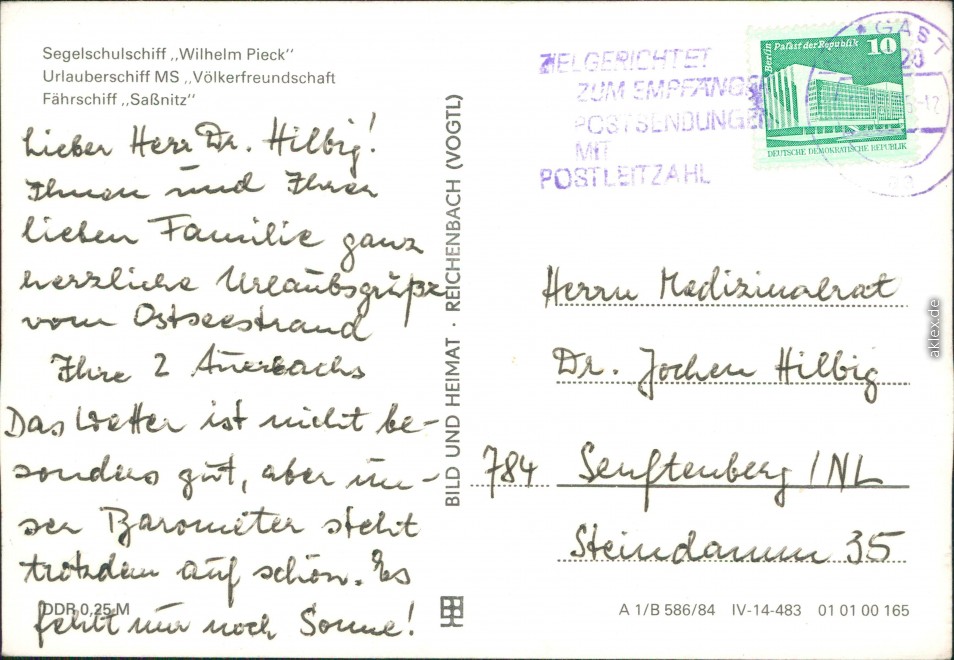 Segelschulschiff „Wilhelm Pieck"
Urlauberschiff MS „Völkerfreundschaft
Fährschiff „Saßnitz"
Lieber Herr Dr. Hilbig!
Ihnen und Ihrer
lieben Familie ganz
herzliche Urlaubsgrüße
vom Ostseestrand
Ihre 2 Auerbachs
Das Wetter ist nicht be-
sonders gut, aber un-
ser Barometer steht
trotzdem auf schön. Es
fehlt nur noch Sonne!
DDR 0,25 M
BILD UND HEIMAT · REICHENBACH (VOGTL)
ZIELGERICHTET
ZUM EMPFÄNGER
POSTSENDUNGEN
MIT
POSTLEITZAHL
Berlin Palast der Republik 10
DEUTSCHE DEMOKRATISCHE REPUBLIK
* GAST
Herrn Medizinalrat
Dr. Jochen Hilbig
784 Senftenberg /NL
Steindamm 35
A 1/B 586/84 IV-14-483 01 01 00 165
aklex.de